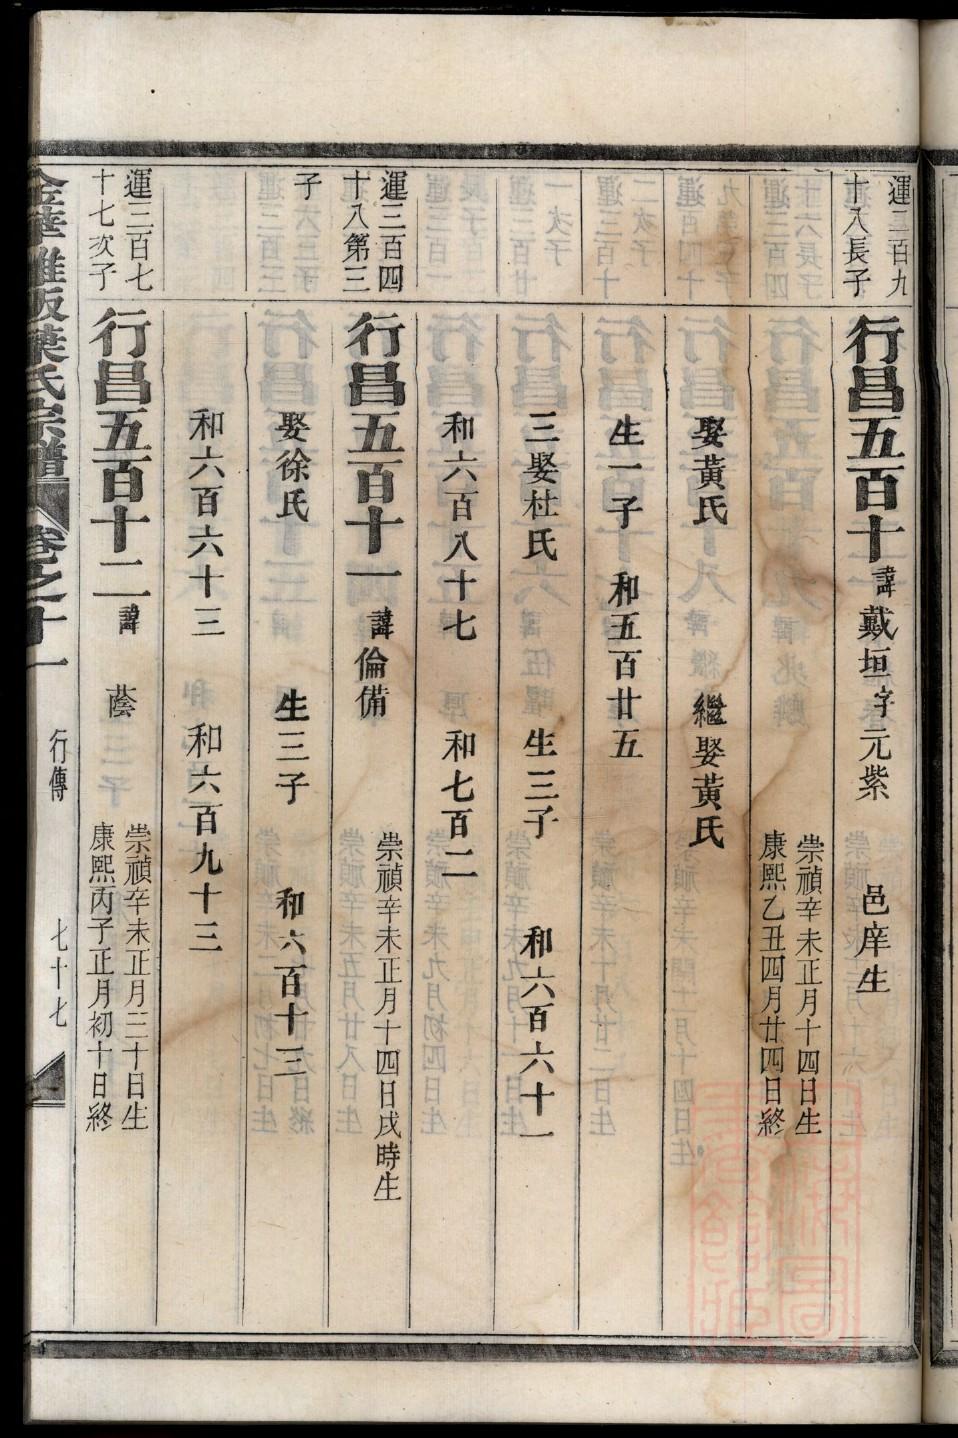 運二百九
十八長子
行昌五百十 諱戴垣字元紫 邑庠生
崇禎辛未正月十四日生
康熙乙丑四月廿四日終
娶黃氏 繼娶黃氏
生一子 和五百廿五
三娶杜氏 生三子 和六百六十一
和六百八十七 和七百二
運三百四
十八第三
子
行昌五百十一 諱倫備
崇禎辛未正月十四日戌時生
娶徐氏 生三子 和六百十三
和六百六十三 和六百九十三
運二百七
十七次子
行昌五百十二 諱 蔭
崇禎辛未正月三十日生
康熙丙子正月初十日終
葉氏宗譜 卷之十一 行傳 七十七